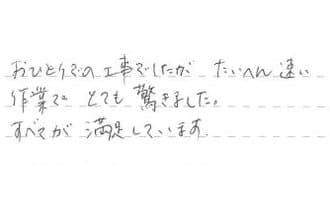 おひとりでの工事でしたが たいへん速い
作業で とても驚きました。
すべてが 満足しています.